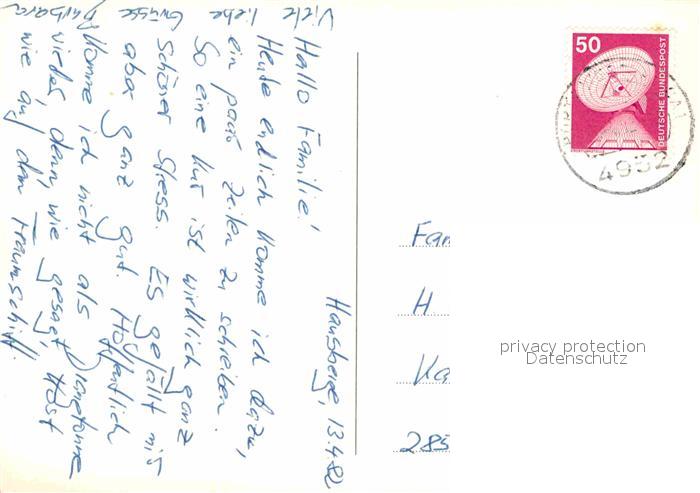 Hausberge, 13.4.82
Hallo Familie!
Heute endlich komme ich dazu,
ein paar Zeilen zu schreiben.
So eine Kur ist wirklich ganz
schöner Stress. Es gefällt mir
aber ganz gut. Hoffentlich
komme ich nicht als Planetonne
wieder, denn, wie gesagt, Kost
wie auf dem Traumschiff.
Viele liebe Grüsse Barbara
50
DEUTSCHE BUNDESPOST
4952
Fam
H
Ka
285
privacy protection
Datenschutz